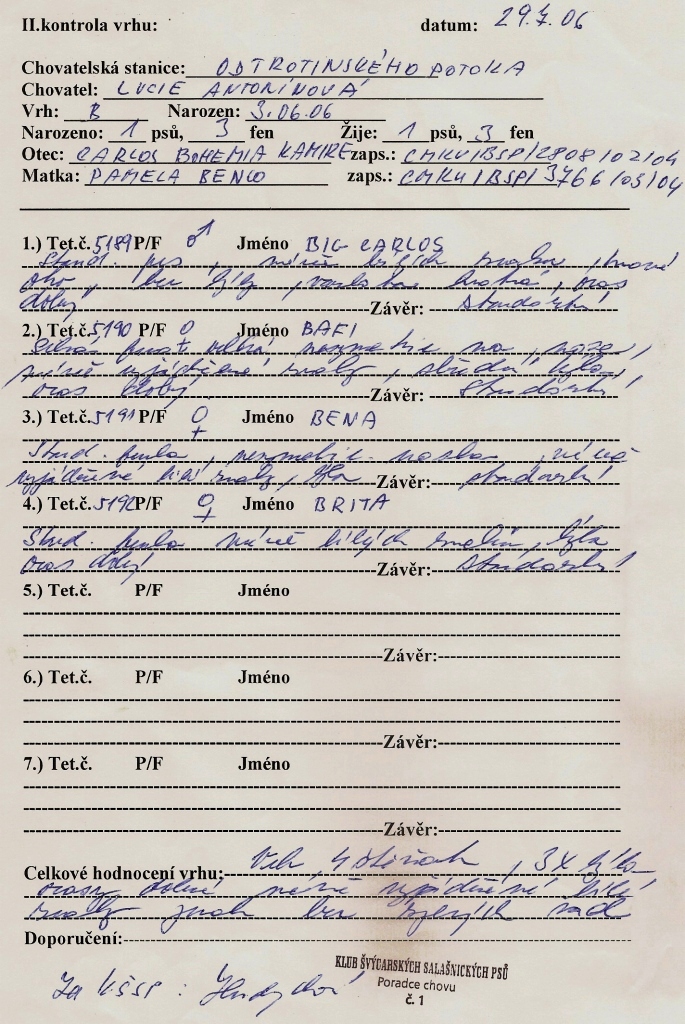 II.kontrola vrhu: datum: 29.7.06
Chovatelská stanice: OD TROTINSKÉHO POTOKA
Chovatel: LUCIE ANTONÍNOVÁ
Vrh: B Narozen: 3.06.06
Narozeno: 1 psů, 3 fen Žije: 1 psů, 3 fen
Otec: CARLOS BOHEMIA KAMIRE zaps.: CMKU/BSP/2808/02/04
Matka: PAMELA BENCO zaps.: CMKU/BSP/3766/03/04
1.) Tet.č. 5189 P/F ♂ Jméno BIG CARLOS
Stand. pes, méně bílých
oko, bez
dobrý Závěr: standardní
2.) Tet.č. 5190 P/F Jméno BAFI
méně vyjádřené znaky,
oras dobrý Závěr: standardní
3.) Tet.č. 5191 P/F ♀ Jméno BENA
Stand. fenka, méně
vyjádřené bílé znaky, Závěr: standardní
4.) Tet.č. 5192 P/F ♀ Jméno BRITA
Stand. fenka méně bílých
oras dobrý Závěr: standardní
5.) Tet.č. P/F Jméno
Závěr:
6.) Tet.č. P/F Jméno
Závěr:
7.) Tet.č. P/F Jméno
Závěr:
Celkové hodnocení vrhu: Vrh 4 štěňat, 3x
méně vyjádřené bílé
znaky jinak bez vad
Doporučení:
Za KŠSP:
KLUB ŠVÝCARSKÝCH SALAŠNICKÝCH PSŮ
Poradce chovu
č. 1